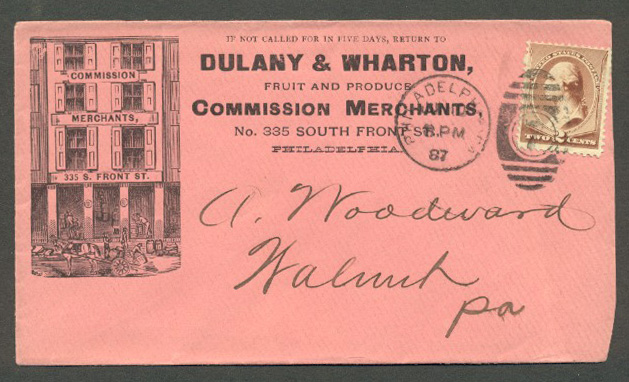 IF NOT CALLED FOR IN FIVE DAYS, RETURN TO
DULANY & WHARTON,
FRUIT AND PRODUCE
COMMISSION MERCHANTS,
No. 335 SOUTH FRONT ST.,
PHILADELPHIA
COMMISSION
MERCHANTS,
335 S. FRONT ST.
PHILADELPHIA
PM
87
TWO CENTS
A. Woodward
Walnut
Pa